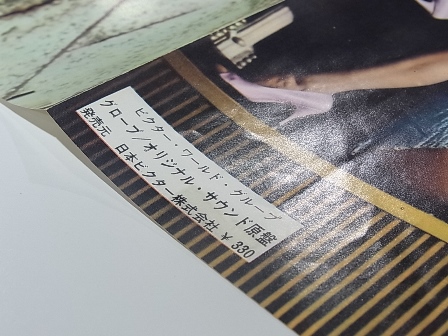 ビクター・ワールド・グループ
グローブ/オリジナル・サウンド原盤
発売元 日本ビクター株式会社 ¥330